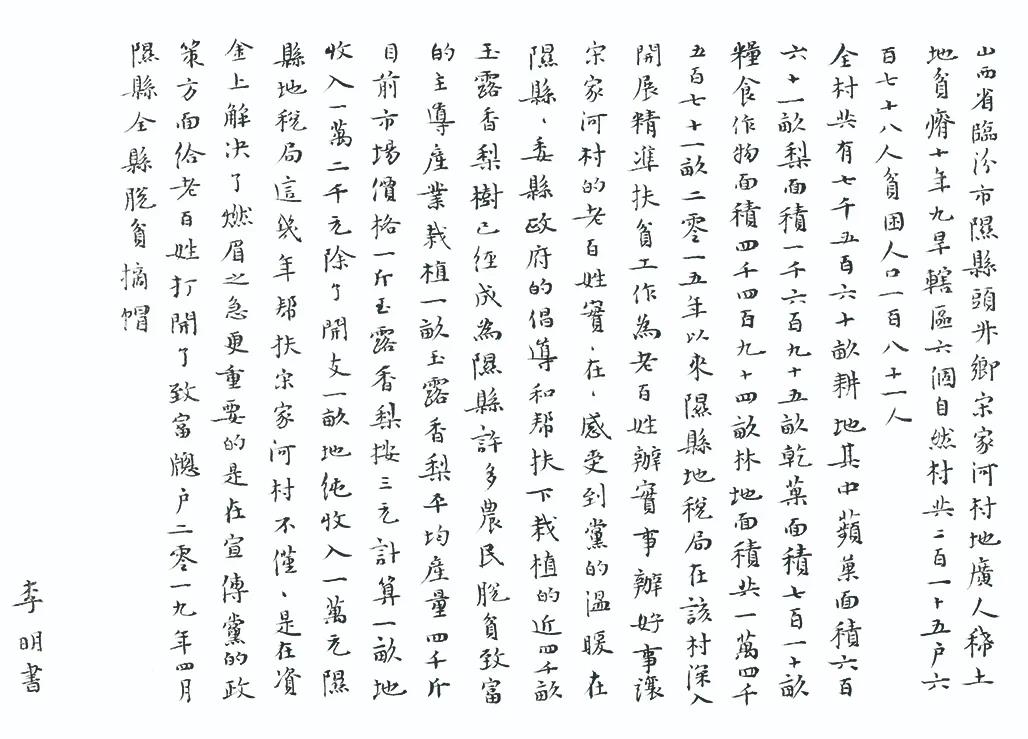 山西省臨汾市隰縣頭井鄉宋家河村地廣人稀土
地貧瘠十年九旱轄區六個自然村共二百一十五户六
百七十八人貧困人口一百八十一人
全村共有七千五百六十畝耕地其中蘋菓面積六百
六十一畝梨面積一千六百九十五畝乾菓面積七百一十畝
糧食作物面積四千四百九十四畝林地面積共一萬四千
五百七十一畝二零一五年以來隰縣地税局在該村深入
開展精準扶貧工作為老百姓辦實事辦好事讓
宋家河村的老百姓實、在、感受到黨的温暖在
隰縣、委縣政府的倡導和帮扶下栽植的近四千畝
玉露香梨樹已經成為隰縣許多農民脱貧致富
的主導産業栽植一畝玉露香梨平均産量四千斤
目前市場價格一斤玉露香梨按三元計算一畝地
收入一萬二千元除了開支一畝地純收入一萬元隰
縣地税局這幾年帮扶宋家河村不僅、是在資
金上解决了燃眉之急更重要的是在宣傳黨的政
策方面給老百姓打開了致富牕户二零一九年四月
隰縣全縣脱貧摘帽
李明書